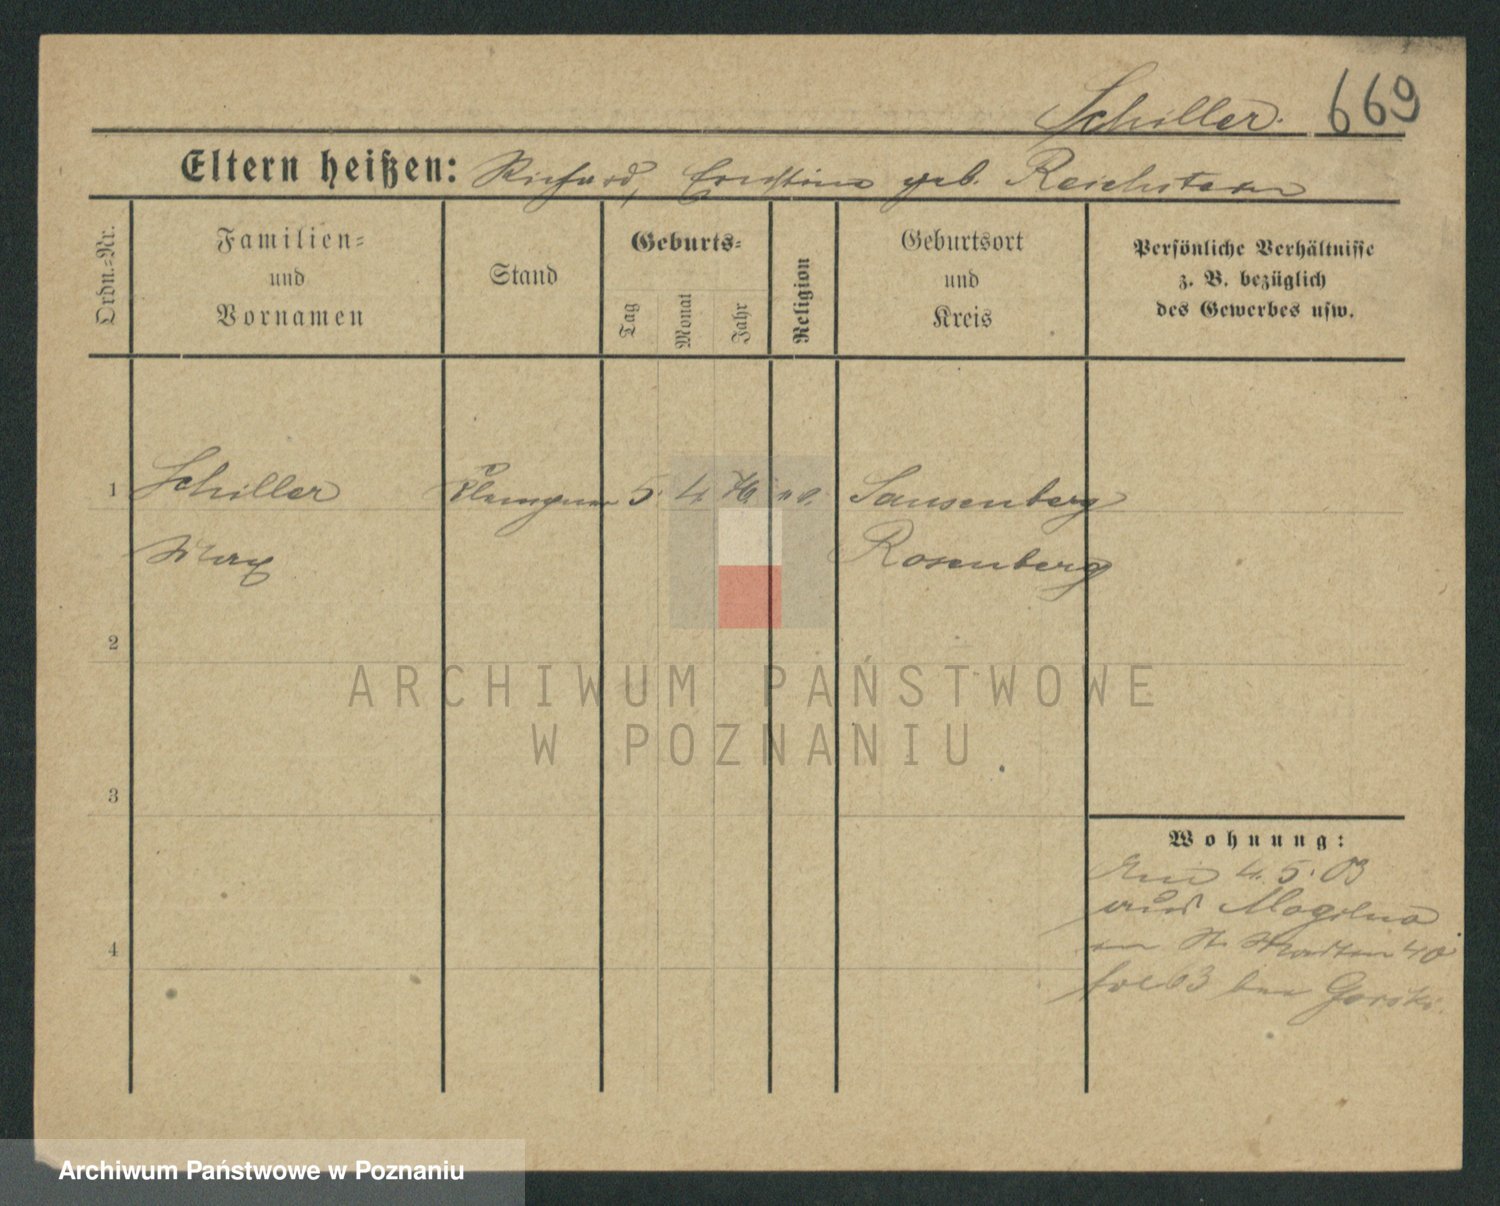 Schiller. 669
Eltern heißen: Richard, Ernstine geb. Reichstein
Ordn.-Nr.
Familien-
und
Vornamen
Stand
Geburts-
Tag
Monat
Jahr
Religion
Geburtsort
und
Kreis
Persönliche Verhältnisse
z. B. bezüglich
des Gewerbes usw.
1 Schiller Klempner 5. 4. 76 ev. Sausenberg
Max Rosenberg
2
3
4
Wohnung:
4. 5. 03
aus Mogilno
St. Martin 40
bei Gorski.
ARCHIWUM PAŃSTWOWE
W POZNANIU
Archiwum Państwowe w Poznaniu